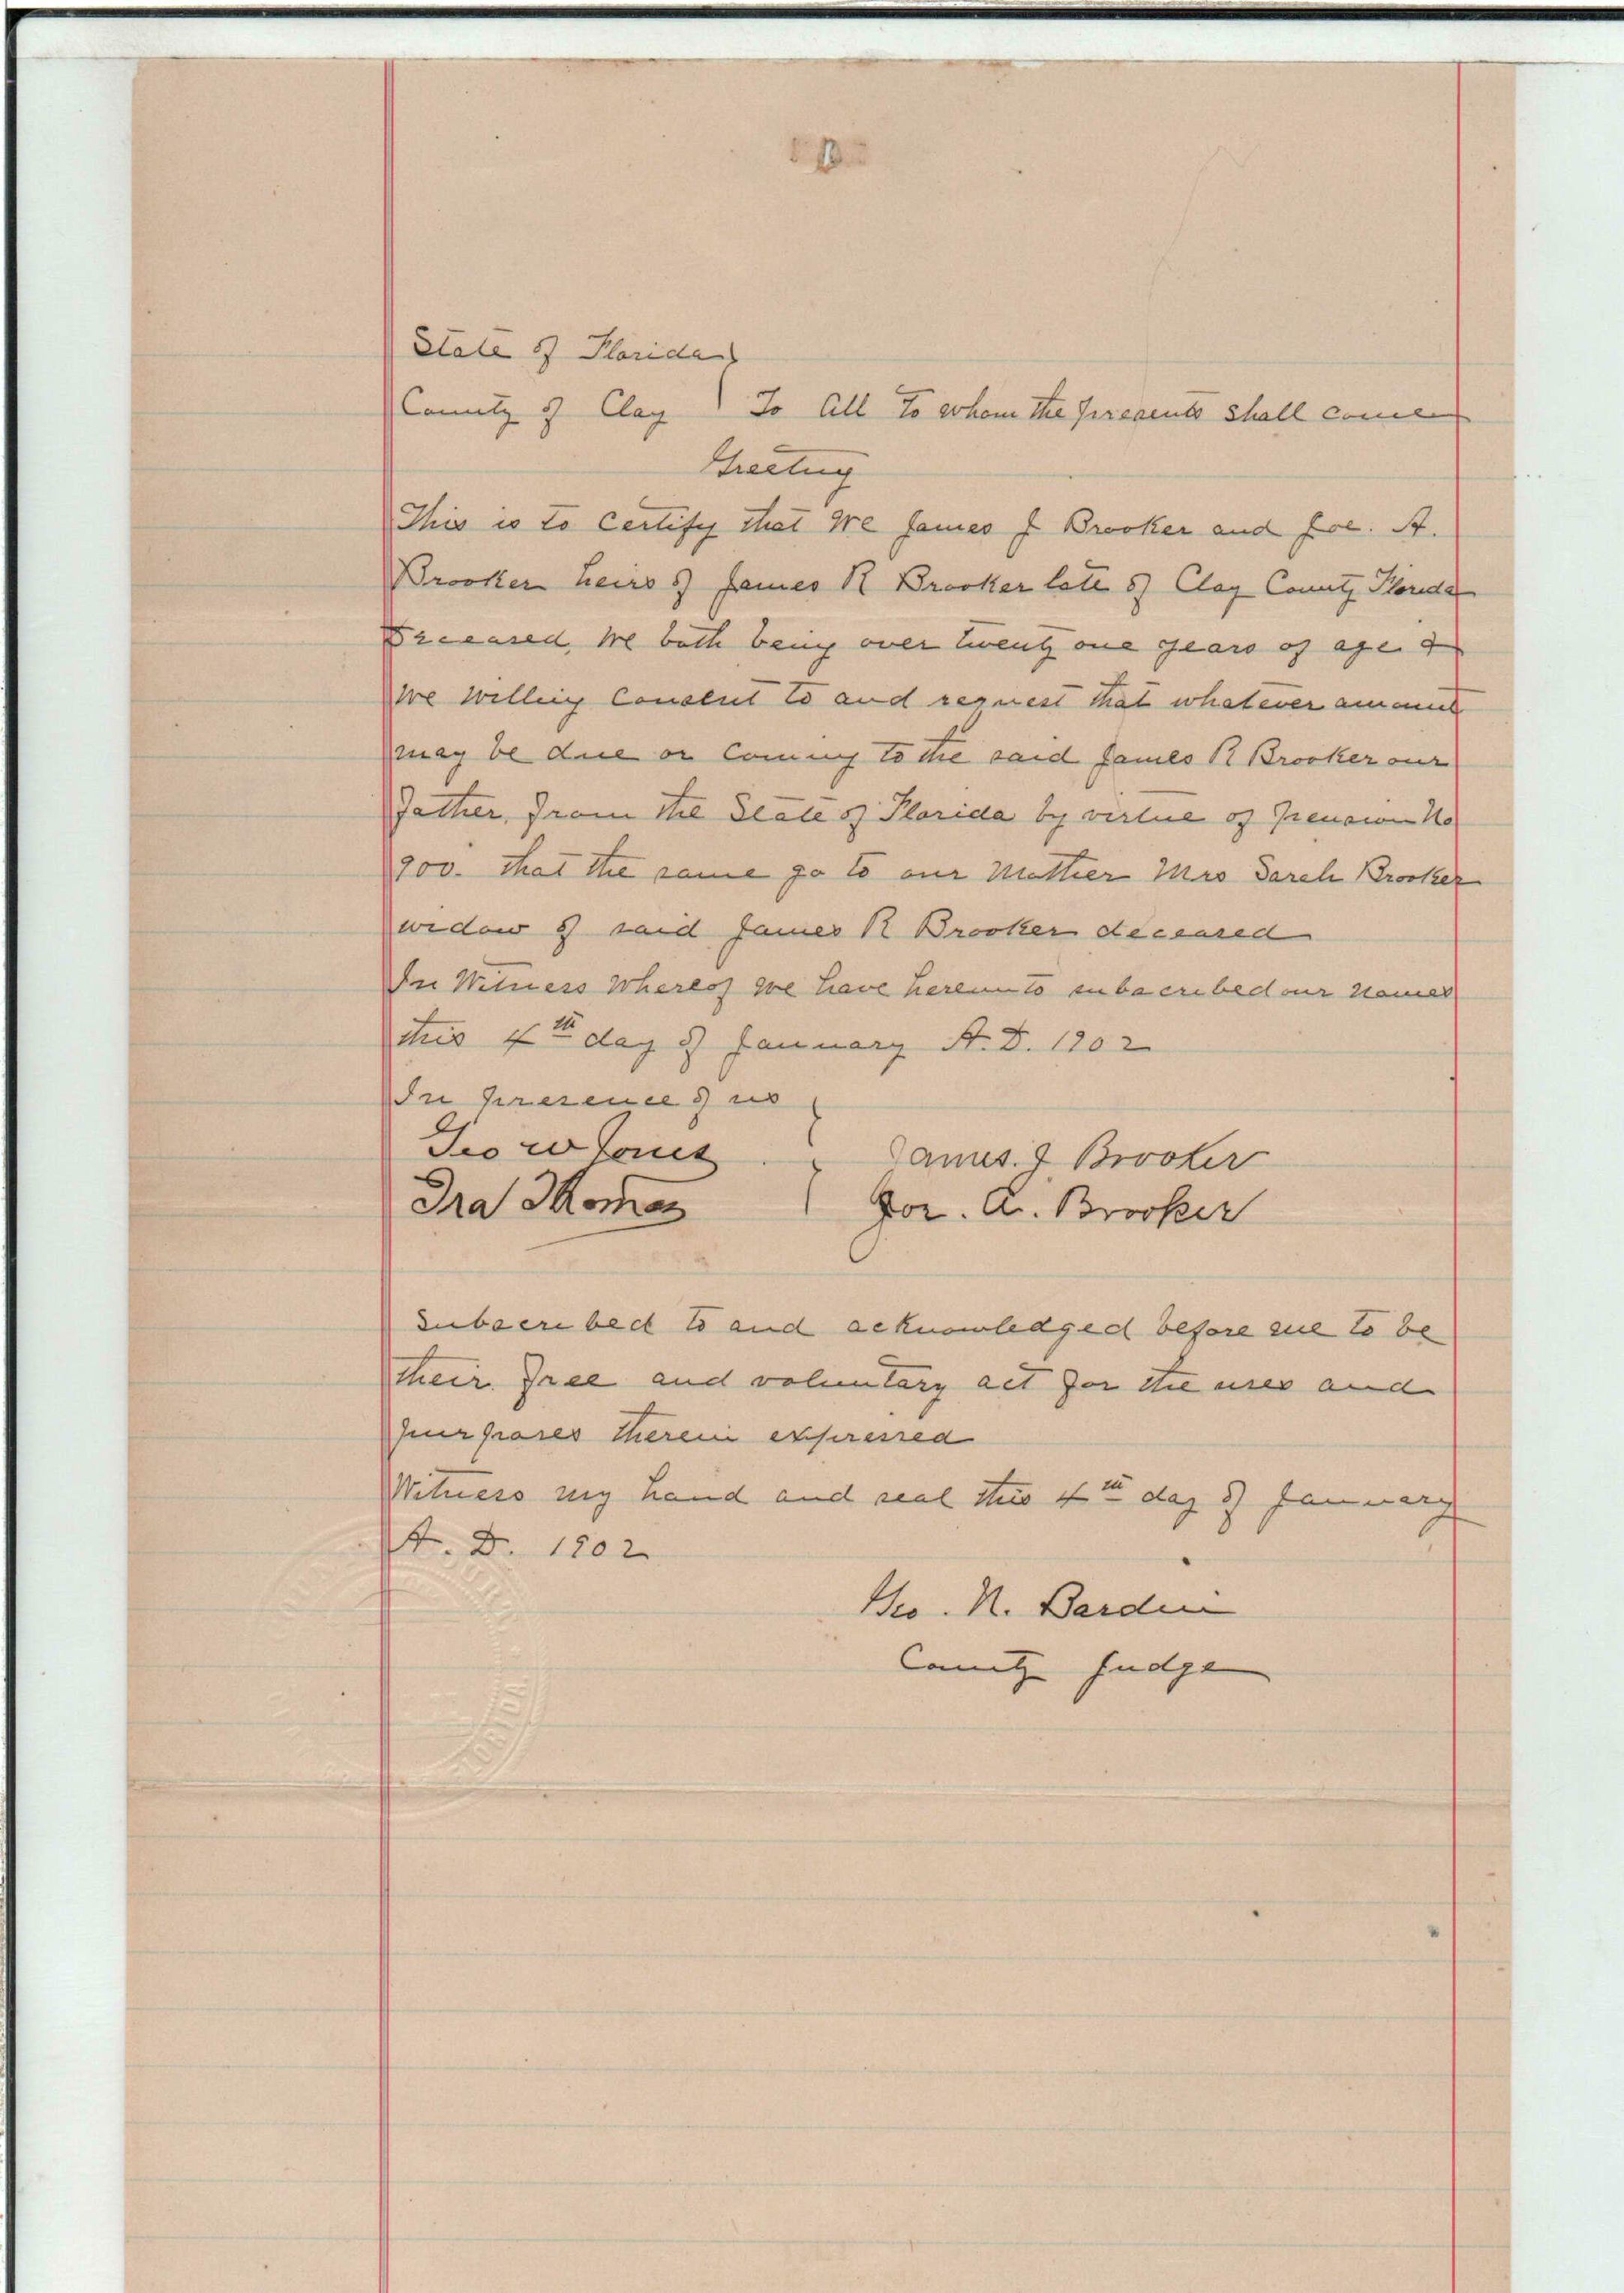 State of Florida
County of Clay } To All to whom the presents shall come
Greeting
This is to certify that we James J Brooker and Joe. A.
Brooker heirs of James R Brooker late of Clay County Florida
Deceased, we both being over twenty one years of age &
we willing consent to and request that whatever amount
may be due or coming to the said James R Brooker our
father, from the State of Florida by virtue of Pension No
900. that the same go to our Mother Mrs Sarah Brooker
widow of said James R Brooker deceased
In Witness Whereof we have hereunto subscribed our names
this 4th day of January A. D. 1902
In presence of us
Geo W
Ira Thomas
James. J Brooker
Joe. A. Brooker
Subscribed to and acknowledged before me to be
their free and voluntary act for the uses and
purposes therein expressed
Witness my hand and seal this 4th day of January
A. D. 1902
Geo. N. Bardin
County Judge